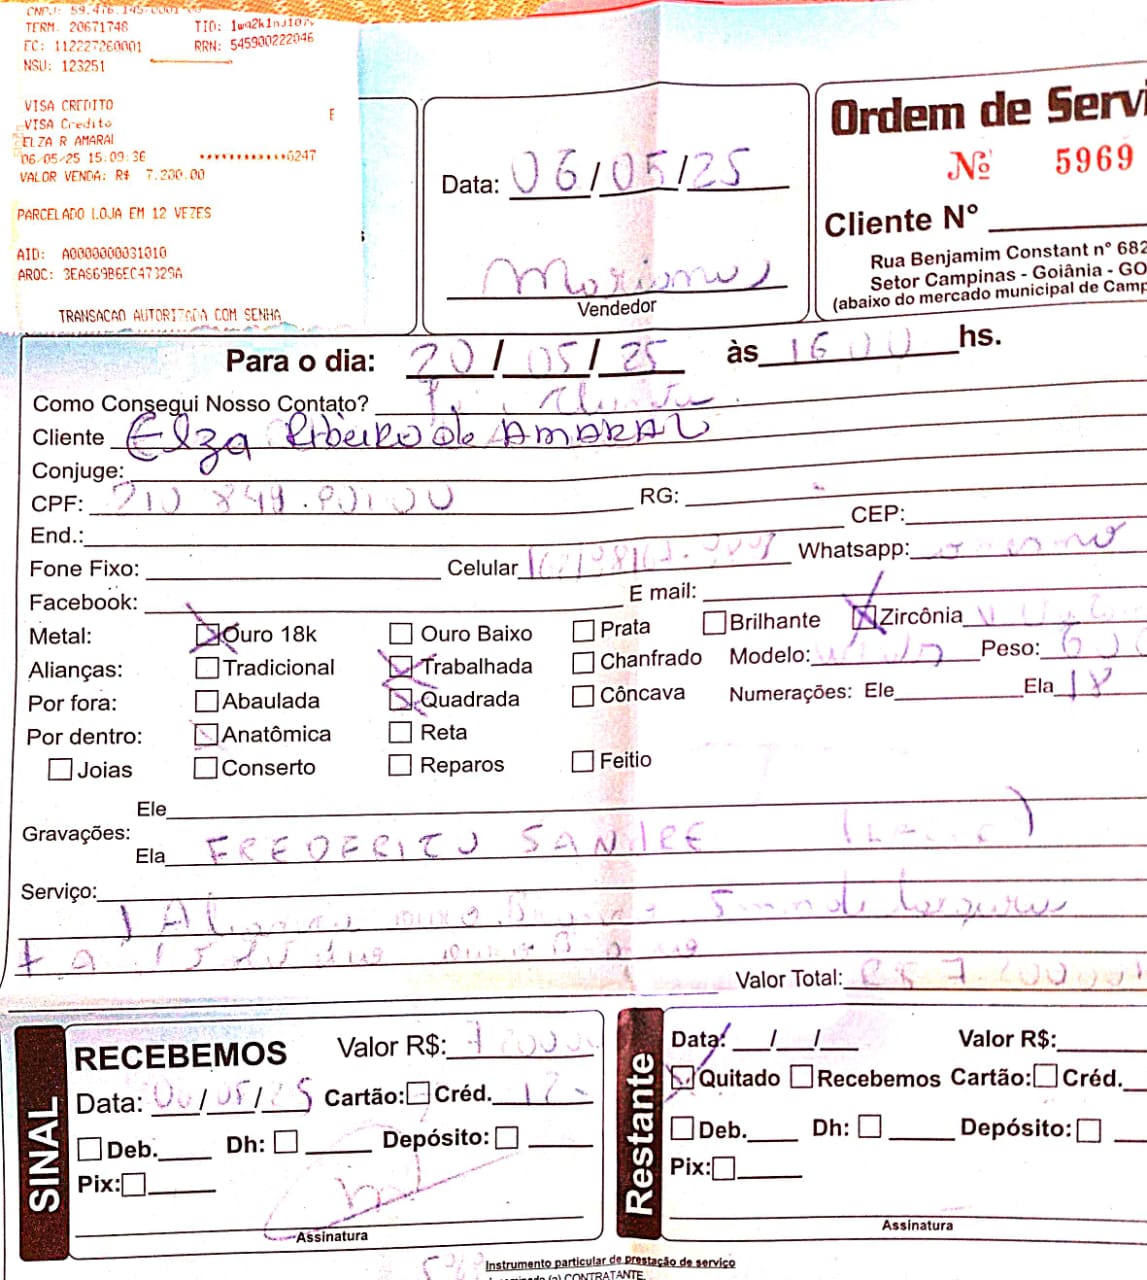 CNPJ: 59.476.145-0001
TERM. 20671748 TID:
FC: 112227260001 RRN: 545900222046
NSU: 123251
VISA CREDITO
E
VISA Credito
ELZA R AMARAL
06/05/25 15:09:36 ************0247
VALOR VENDA: R$ 7.200.00
PARCELADO LOJA EM 12 VEZES
AID: A0000000031010
AROC: 3EA669B6EC47329A
TRANSACAO AUTORIZADA COM SENHA
Data: 06/05/25
Vendedor
Ordem de Servi
Nº 5969
Cliente N°
Rua Benjamim Constant n° 682
Setor Campinas - Goiânia - GO
(abaixo do mercado municipal de Camp
Para o dia: 20/05/25 às 1600 hs.
Como Consegui Nosso Contato?
Cliente Elza Ribeiro de AMARAL
Conjuge:
CPF: RG:
End.: CEP:
Fone Fixo: Celular Whatsapp: o mesmo
Facebook: E mail:
Metal: Ouro 18k Ouro Baixo Prata Brilhante Zircônia
Alianças: Tradicional Trabalhada Chanfrado Modelo: Peso:
Por fora: Abaulada Quadrada Côncava Numerações: Ele Ela 18
Por dentro: Anatômica Reta
Joias Conserto Reparos Feitio
Gravações:
Ele
Ela FREDERICO SANDRE
Serviço:
1 5 mm de largura
Valor Total: R$ 7.200,00
SINAL
RECEBEMOS Valor R$:
Data: 06/05/25 Cartão: Créd. 12
Deb. Dh: Depósito:
Pix:
Assinatura
Restante
Data: / / Valor R$:
Quitado Recebemos Cartão: Créd.
Deb. Dh: Depósito:
Pix:
Assinatura
Instrumento particular de prestação de serviço
(a) CONTRATANTE.